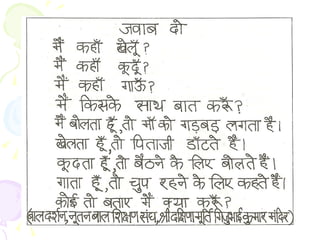 जवाब दो
मैं कहाँ खेलूँ?
मैं कहाँ कूदूँ?
मैं कहाँ गाऊँ?
मैं किसके साथ बात करूँ?
मैं बोलता हूँ, तो माँ को गड़बड़ लगता है।
खेलता हूँ, तो पिताजी डाँटते हैं।
कूदता हूँ, तो बैठने के लिए बोलते हैं।
गाता हूँ, तो चुप रहने के लिए कहते हैं।
कोई तो बताए मैं क्या करूँ?
(बालदर्शन, नूतन बाल शिक्षण संघ, श्री दक्षिणामूर्ति गिजुभाई कुमार मंदिर)